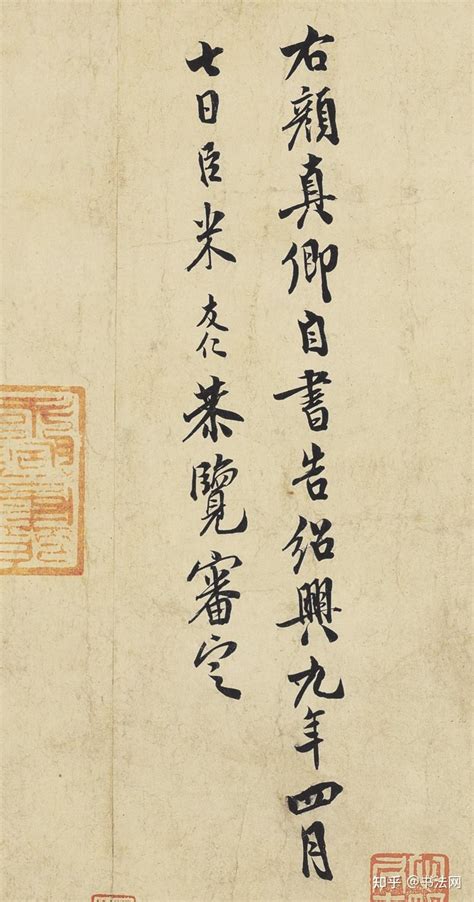 右顔真卿自書告紹興九年四月
七日臣米友仁恭覽審定
知乎 @书法网